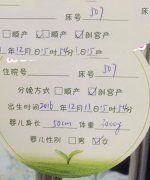 床号 507
□顺产 □顺产 ☑剖宫产
年12月11日15时54分
住院号 床号 507
分娩方式 □顺产 ☑剖宫产
出生时间2016年12月11日15时54分
婴儿身长 50cm 体重 3000g
婴儿性别 □男 ☑女